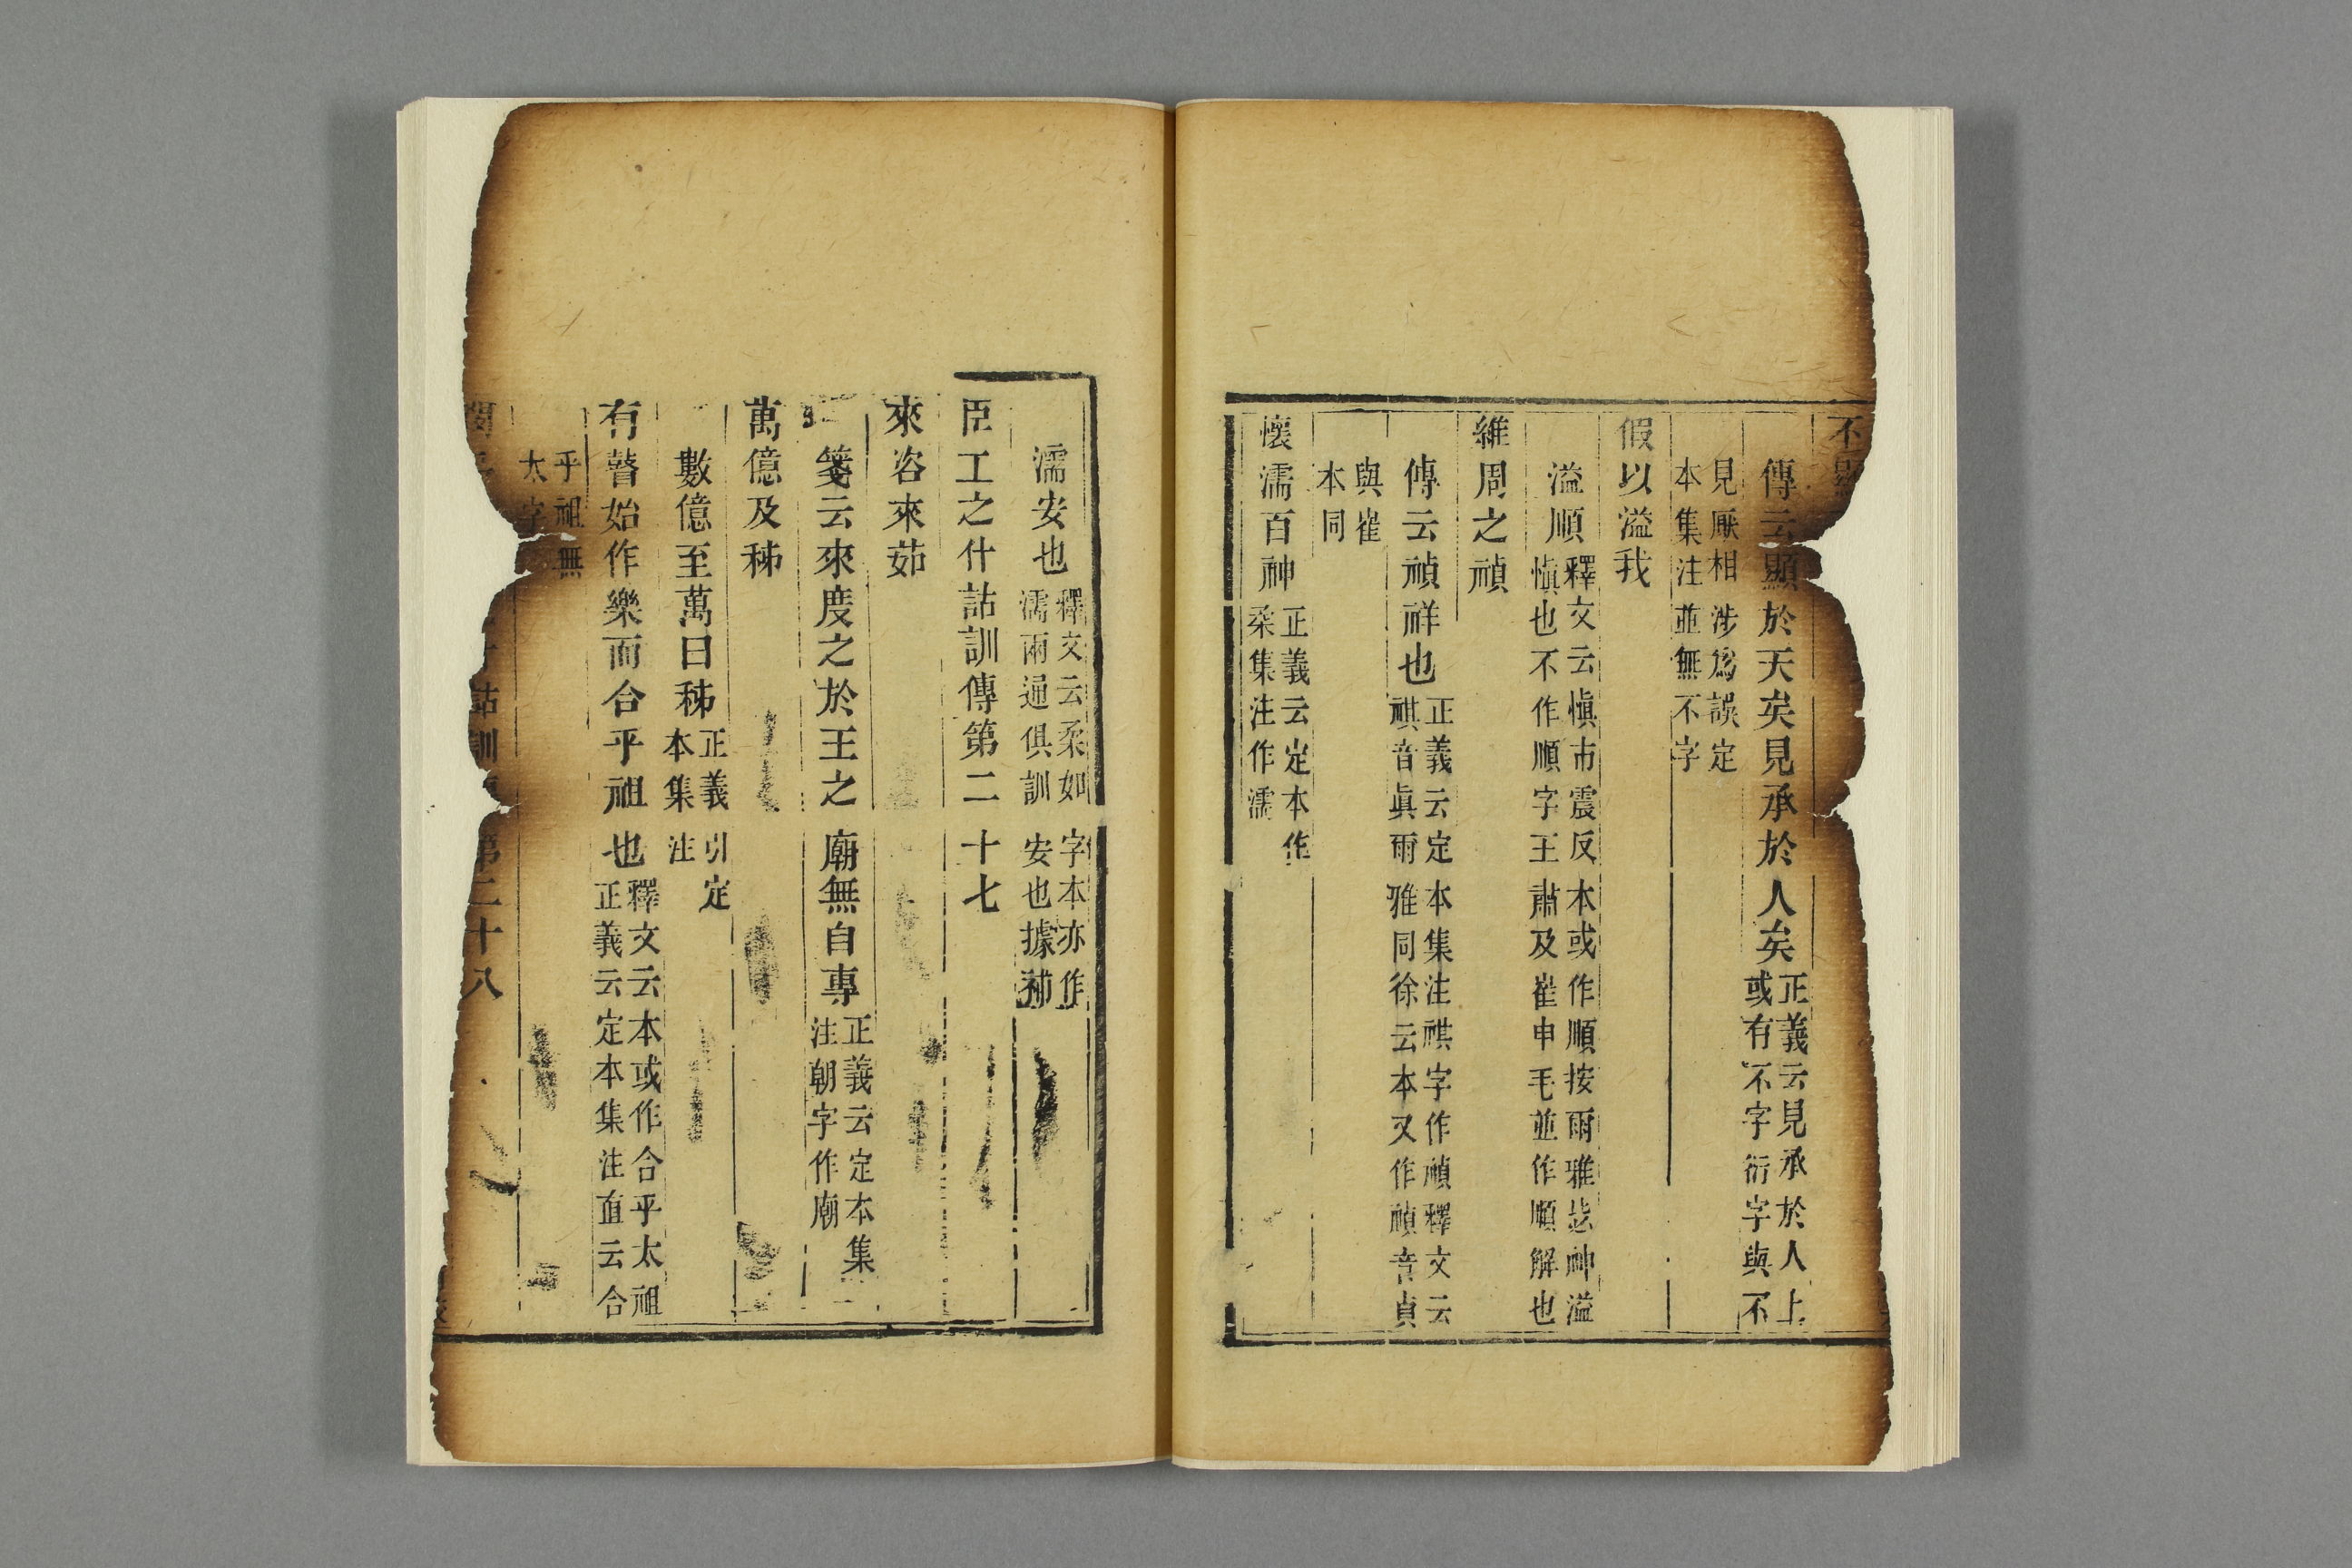 不顯
傳云顯於天矣見承於人矣正義云見承於人上
或有不字衍字與不
見厥相涉爲誤定
本集注並無不字
假以溢我
溢順釋文云愼市震反本或作順按爾雅毖神溢
愼也不作順字王肅及崔申毛並作順解也
維周之禎
傳云禎祥也正義云定本集注祺字作禎釋文云
祺音眞爾雅同徐云本又作禎音貞
與崔
本同
懷濡百神正義云定本作
柔集注作濡
濡安也釋文云柔如字本亦作
濡兩通俱訓安也據補
臣工之什詁訓傳第二十七
來咨來茹
箋云來度之於王之廟無自專正義云定本集
注朝字作廟
萬億及秭
數億至萬曰秭正義引定
本集注
有瞽始作樂而合乎祖也釋文云本或作合乎太祖
正義云定本集注直云合
乎祖無
太字
詁訓 第二十八